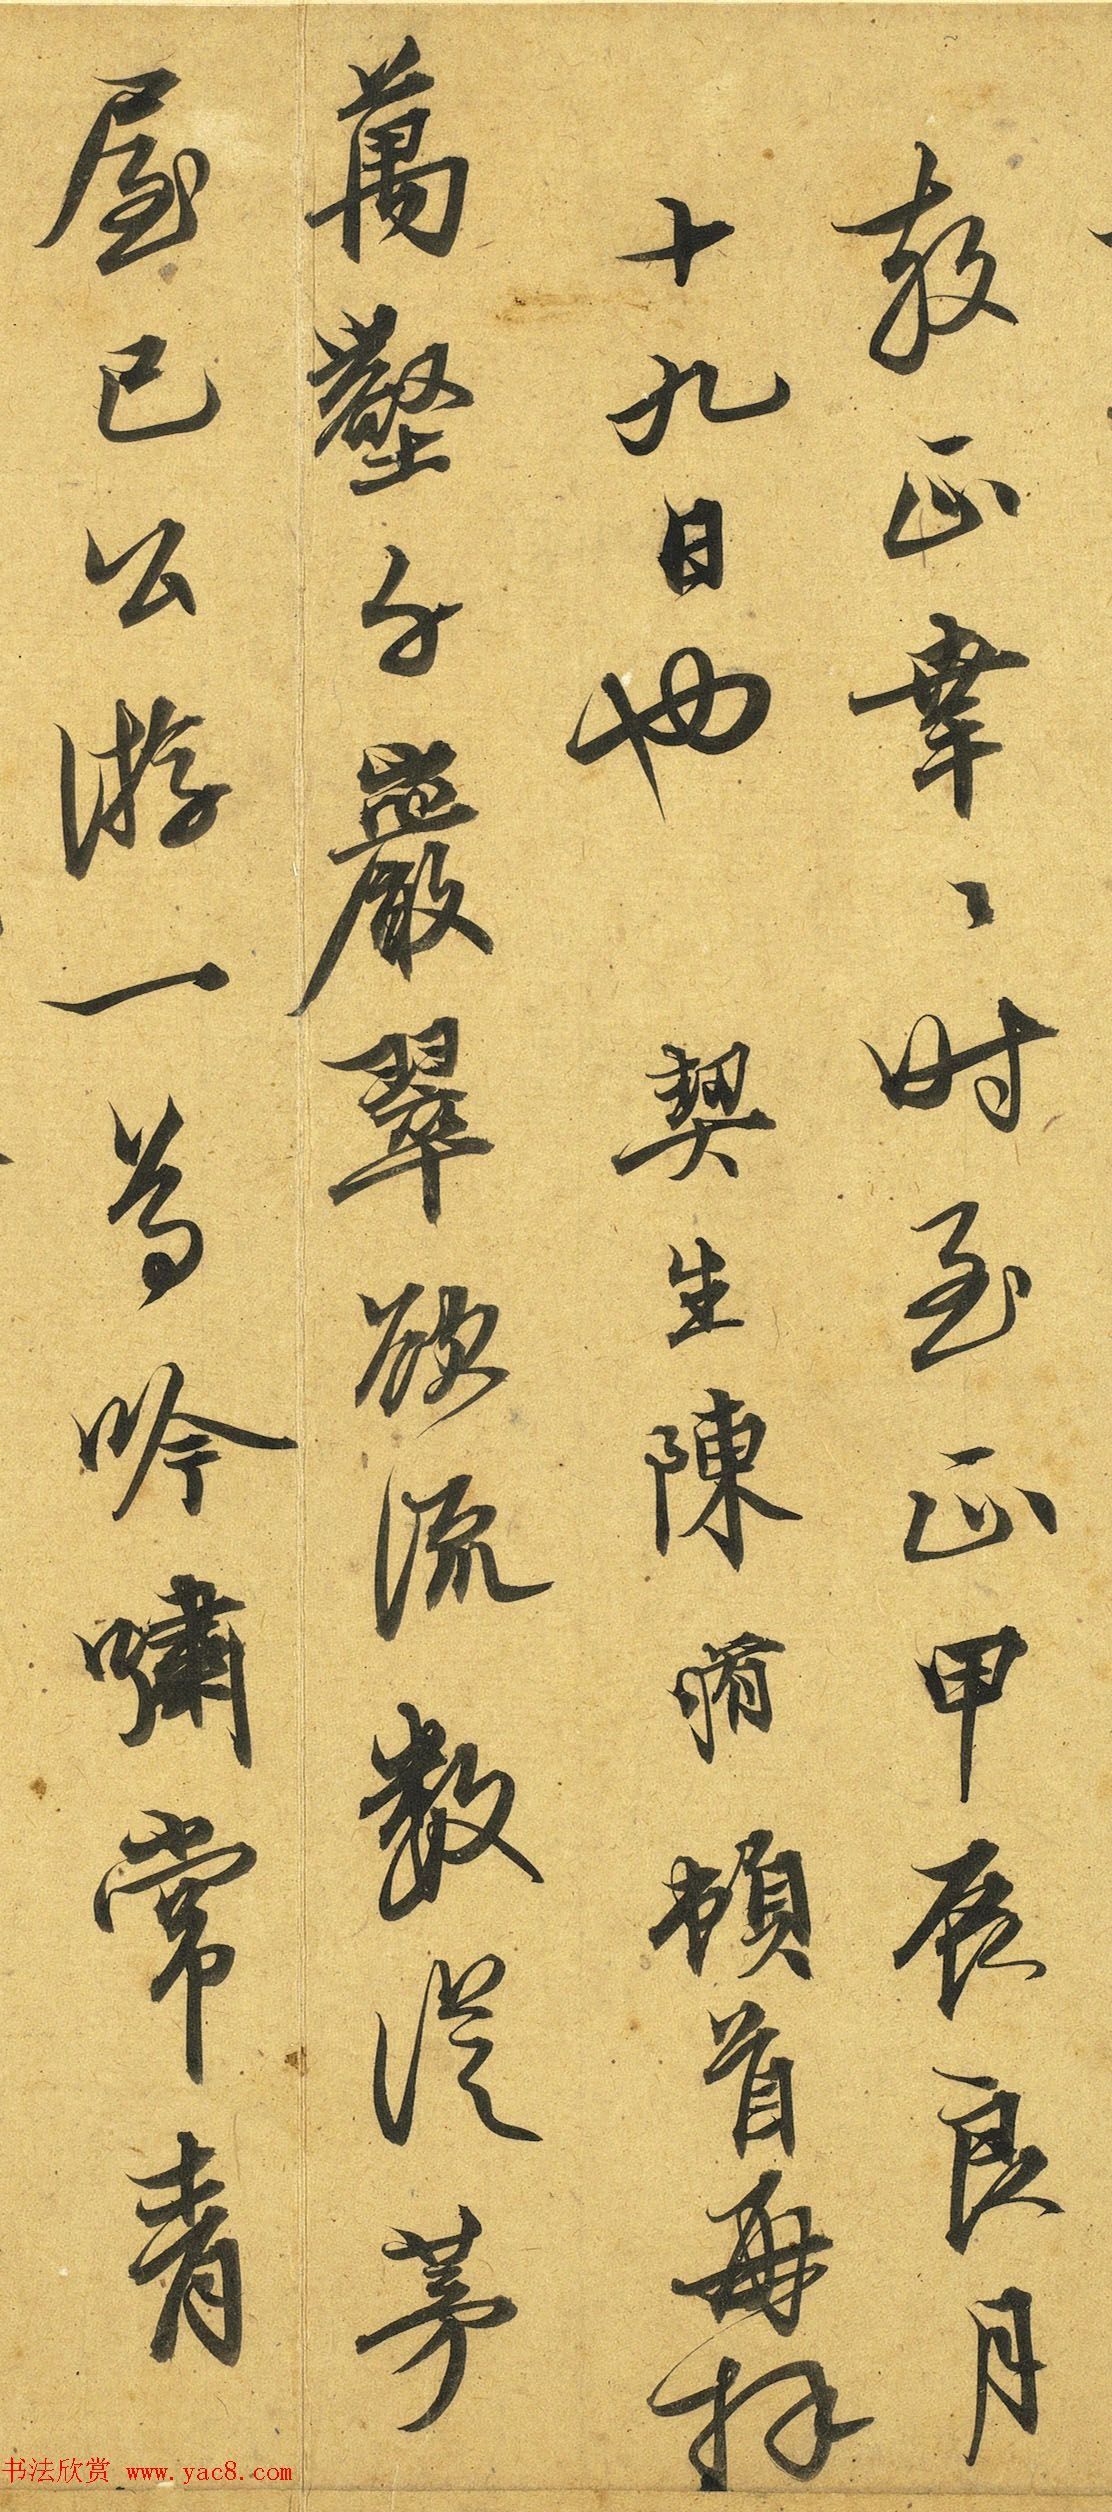 教正幸〻时至正甲辰良月
十九日也 契生陳脩頓首再拜
萬壑千巖翠欲流數從茅
屋已公游一為吟嘯常青
书法欣赏 www.yac8.com